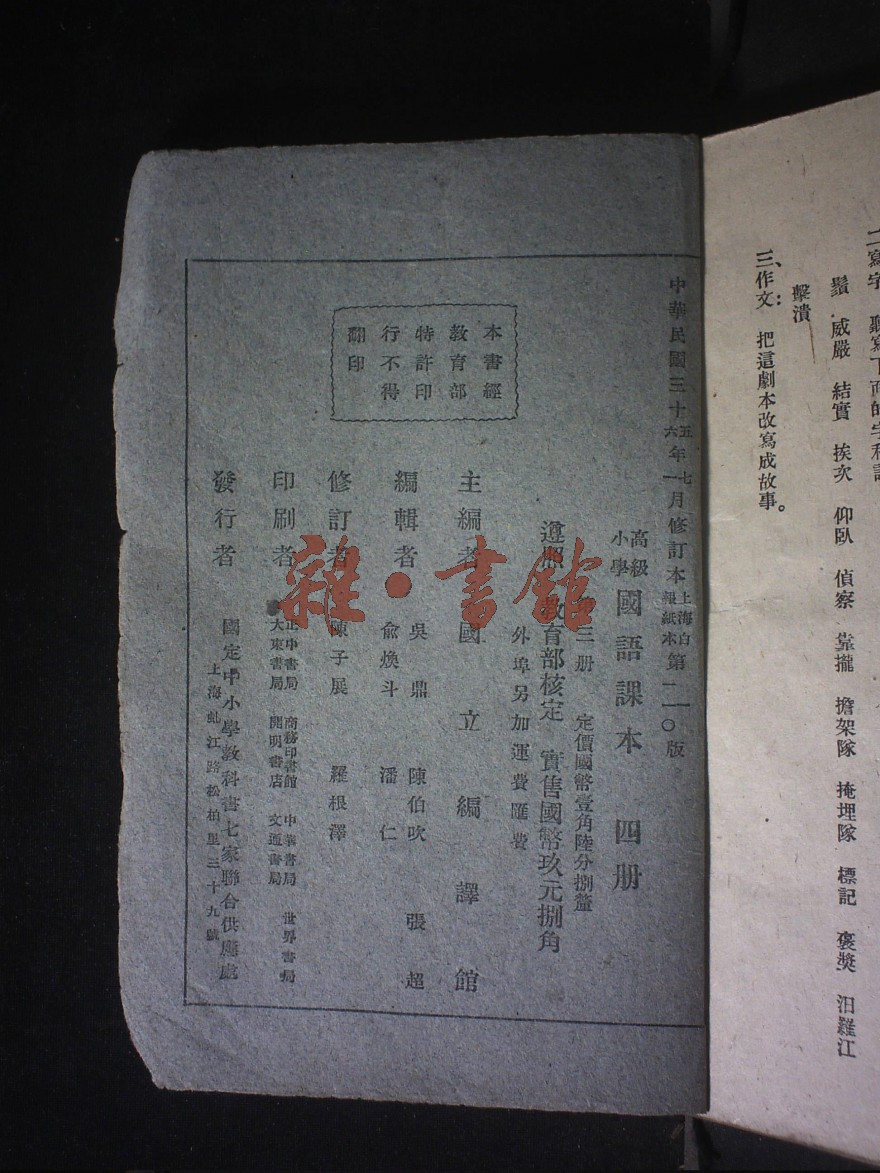 二、寫字
三、作文：把這劇本改寫成故事。
鬚 威嚴 結實 挨次 仰臥 偵察 靠攏 擔架隊 掩埋隊 標記 褒獎 汨羅江
擊潰
中華民國三十五年七月修訂本 上海白報紙本 第二一〇版
六 一
高級小學 國語課本 四册
第三册 定價國幣壹角陸分捌釐
遵照教育部核定 實售國幣玖元捌角
外埠另加運費匯費
本書經
教育部
特許印
行不得
翻印
主編者 國立編譯館
編輯者 吳鼎 陳伯吹 張超
俞煥斗 潘仁
修訂者 陳子展 羅根澤
印刷者 正中書局 商務印書館 中華書局 世界書局
大東書局 開明書店 文通書局
發行者 國定中小學教科書七家聯合供應處
上海虬江路松柏里三十九號
雜·書館